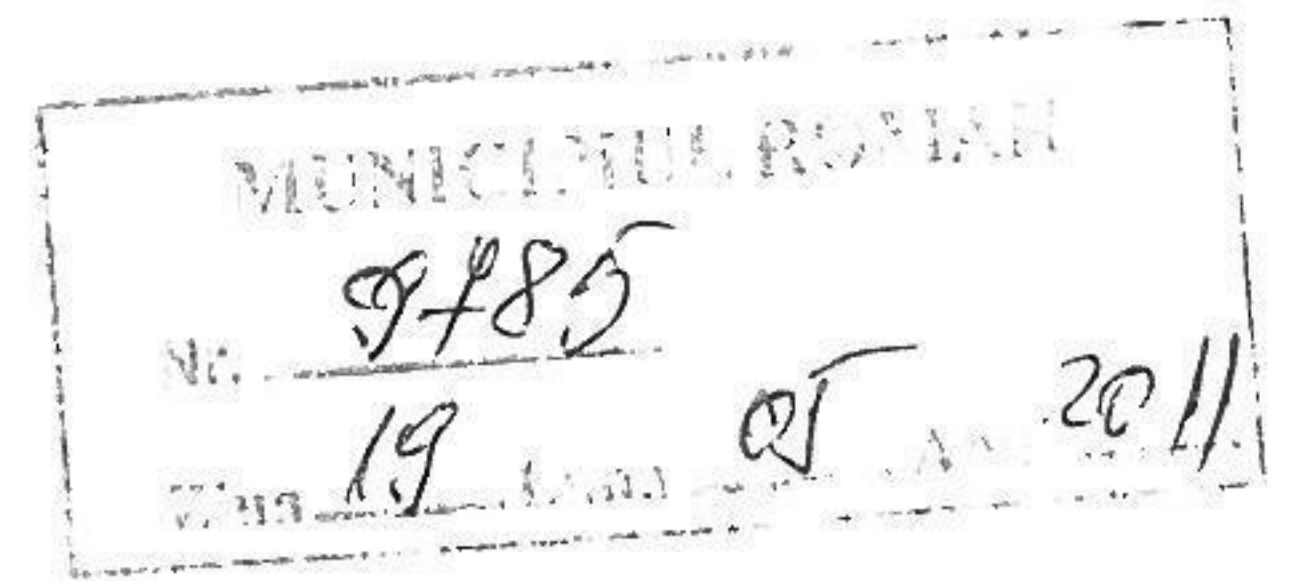 MUNICIPIUL ROMAN
Nr. 9785
Ziua 19 Luna 05 An 2011